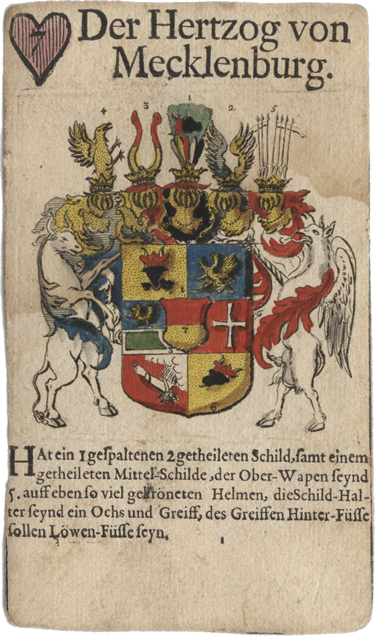 7
Der Hertzog von
Mecklenburg.
4 3 1 2 5
7
6
HAt ein 1 gespaltenen 2 getheileten Schild, samt einem
getheileten Mittel-Schilde, der Ober-Wapen seynd
5. auff eben so viel gekröneten Helmen, die Schild-Hal-
ter seynd ein Ochs und Greiff, des Greiffen Hinter-Füsse
sollen Löwen-Füsse seyn.